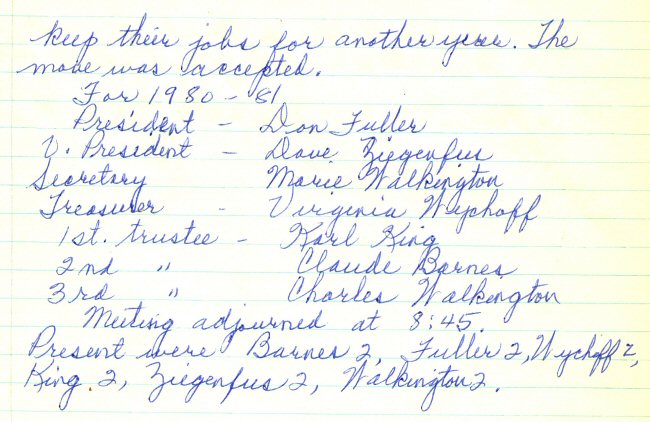 keep their jobs for another year. The
move was accepted.
For 1980 - 81
President - Don Fuller
V. President - Dave Ziegenfus
Secretary Marie Walkington
Treasurer - Virginia Wychoff
1st. trustee - Karl King
2nd " Claude Barnes
3rd " Charles Walkington
Meeting adjourned at 8:45.
Present were Barnes 2, Fuller 2, Wychoff 2,
King 2, Ziegenfus 2, Walkington 2.